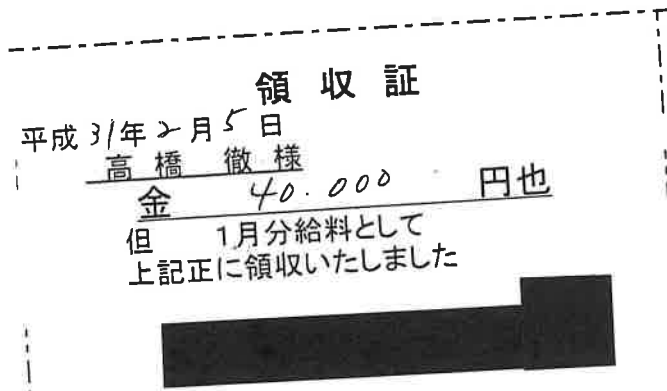 領収証
平成31年2月5日
高橋 徹 様
金 40.000 円也
但 1月分給料として
上記正に領収いたしました